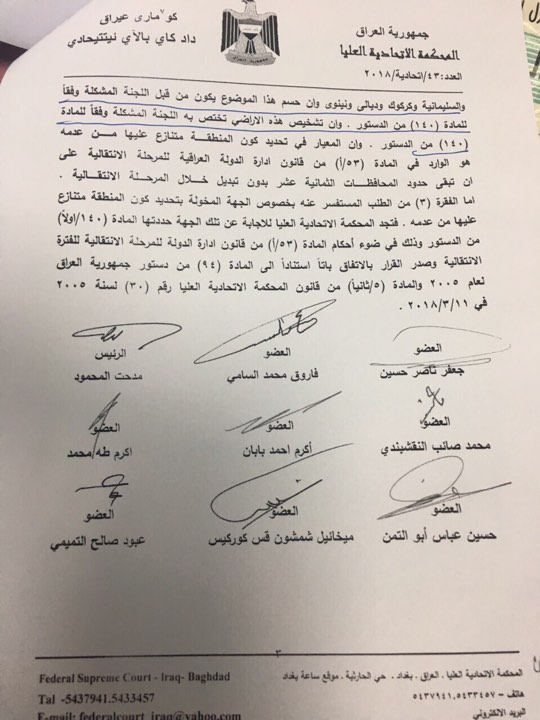 جمهورية العراق
المحكمة الاتحادية العليا
العدد:٤٣/اتحادية/٢٠١٨
كو ماری عیراق
داد كای بالآی ئیتتیحادی
والسليمانية وكركوك وديالى ونينوى وان حسم هذا الموضوع يكون من قبل اللجنة المشكلة وفقاً
للمادة (١٤٠) من الدستور . وان تشخيص هذه الاراضي تختص به اللجنة المشكلة وفقاً للمادة
(١٤٠) من الدستور . وان المعيار في تحديد كون المنطقة متنازع عليها من عدمه
هو الوارد في المادة (٥٣/أ) من قانون ادارة الدولة العراقية للمرحلة الانتقالية على
ان تبقى حدود المحافظات الثمانية عشر بدون تبديل خلال المرحلة الانتقالية .
اما الفقرة (٣) من الطلب المستفسر عنه بخصوص الجهة المخولة بتحديد كون المنطقة متنازع
عليها من عدمه . فتجد المحكمة الاتحادية العليا للاجابة عن تلك الجهة حددتها المادة (١٤٠/اولاً)
من الدستور وذلك في ضوء أحكام المادة (٥٣/أ) من قانون ادارة الدولة للمرحلة الانتقالية للفترة
الانتقالية وصدر القرار بالاتفاق باتاً استناداً الى المادة (٩٤) من دستور جمهورية العراق
لعام ٢٠٠٥ والمادة (٥/ثانياً) من قانون المحكمة الاتحادية العليا رقم (٣٠) لسنة ٢٠٠٥
في ٢٠١٨/٣/١١ .
العضو العضو الرئيس
جعفر ناصر حسين فاروق محمد السامي مدحت المحمود
العضو العضو العضو
محمد صائب النقشبندي أكرم احمد بابان اكرم طه محمد
العضو العضو العضو
حسين عباس أبو التمن ميخائيل شمشون قس كوركيس عبود صالح التميمي
٣
المحكمة الاتحادية العليا . العراق . بغداد . حي الحارثية . موقع ساعة بغداد
هاتف – ٥٤٣٧٩٤١.٥٤٣٣٤٥٧
البريد الالكتروني
Federal Supreme Court - Iraq- Baghdad
Tal -5437941.5433457
E-mail: federalcourt_iraq@yahoo.com